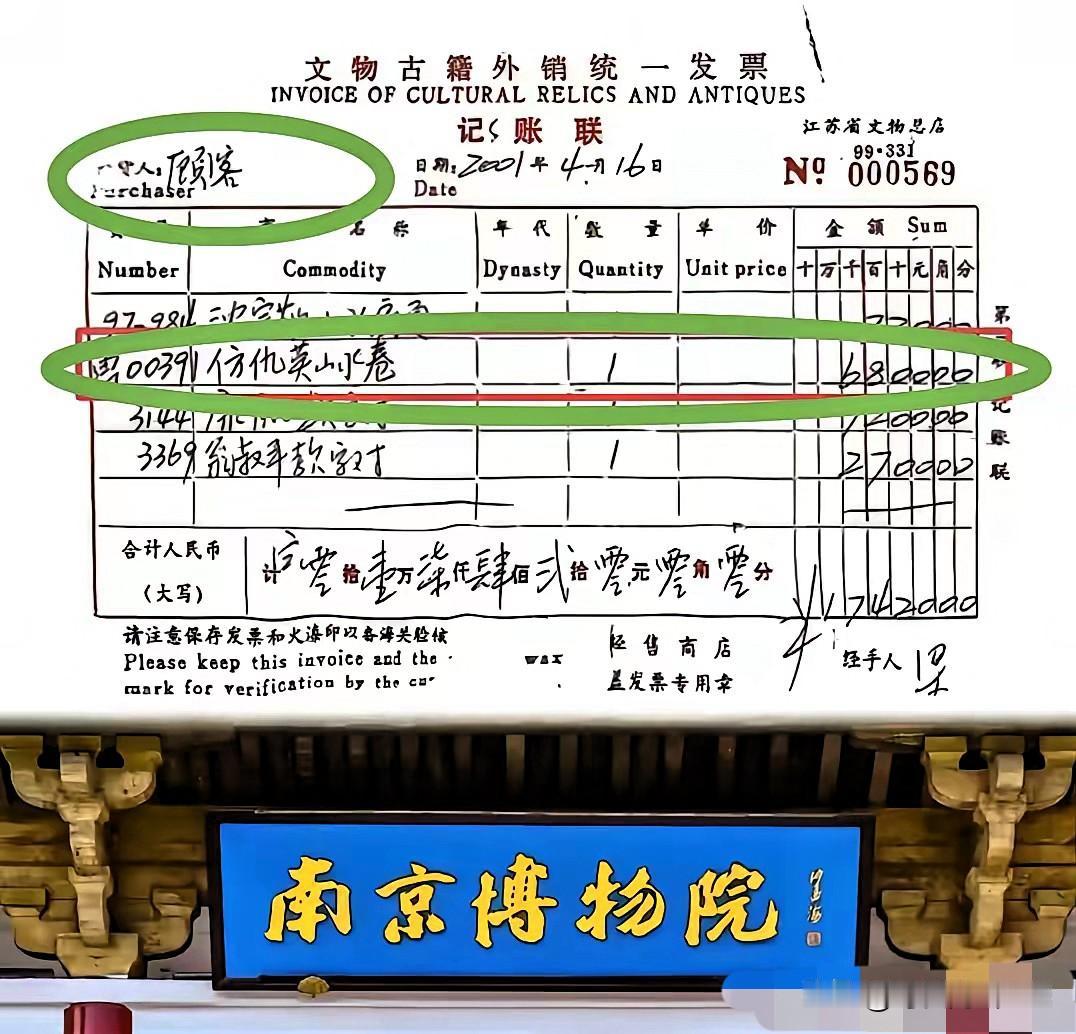 文物古籍外销统一发票
INVOICE OF CULTURAL RELICS AND ANTIQUES
记账联
江苏省文物总店
99·331
人：顾客
Purchaser
日期：2001年4月16日
Date
Nº 000569
名称 年代 数量 单价 金额 Sum
Number Commodity Dynasty Quantity Unit price 十万千百十元角分
97-984
00391 仿仇英山水卷 1 680000
3144
3369 翁叔平款字对 1 270000
合计人民币
（大写）
零拾壹万柒仟肆佰弍拾零元零角零分 ¥1742000
第 记账联
请注意保存发票和火漆印以备海关验核
Please keep this invoice and the wax
mark for verification by the
经售商店
盖发票专用章
经手人
南京博物院